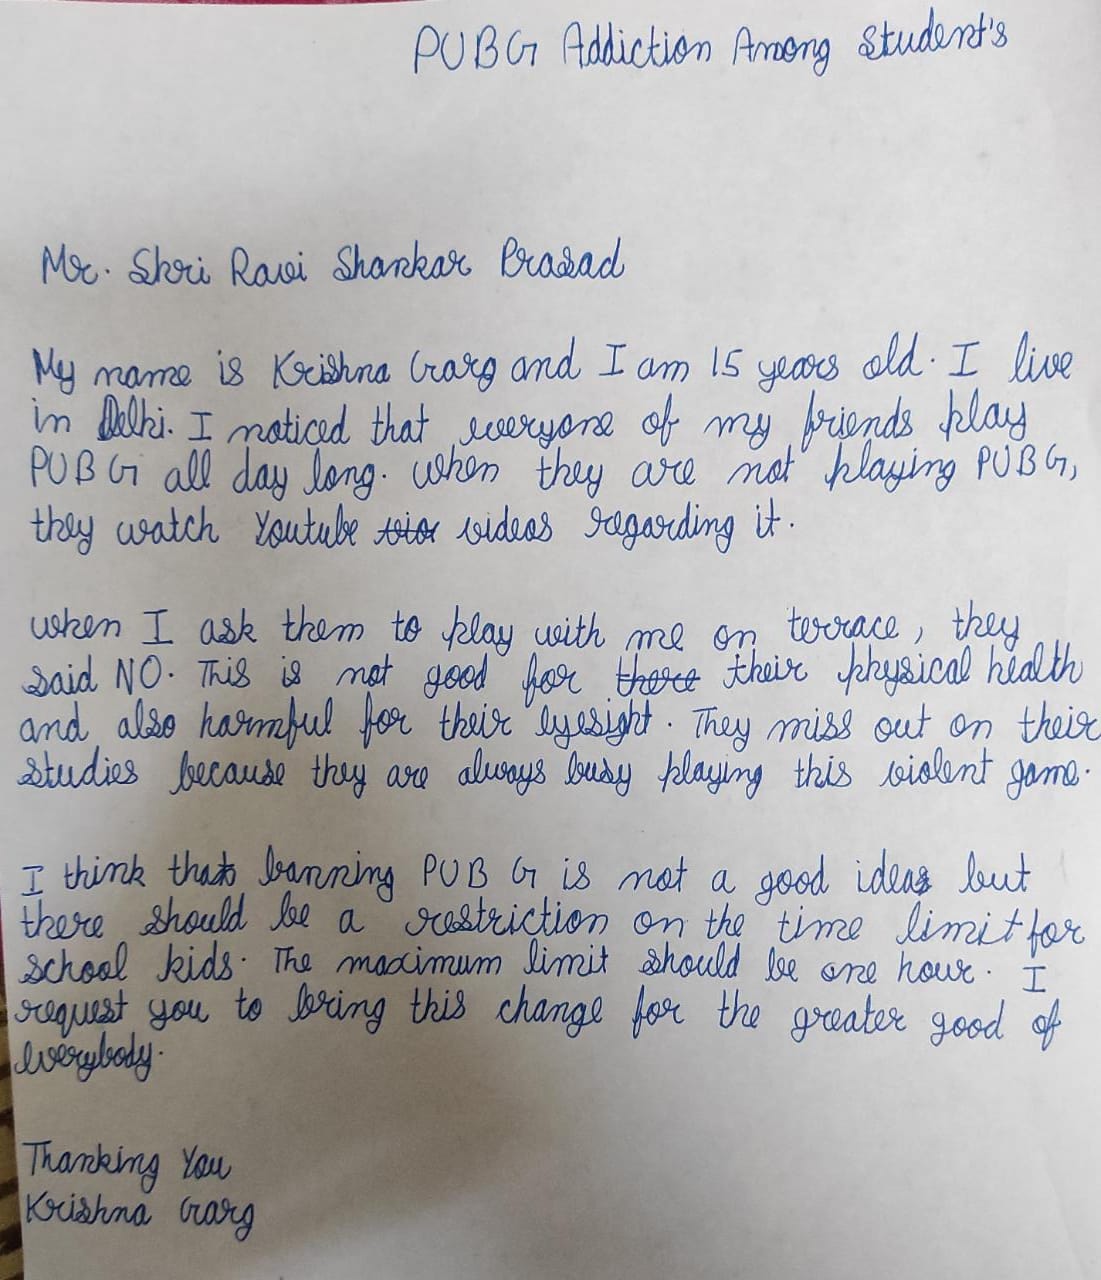 PUBG Addiction Among Student's
Mr. Shri Ravi Shankar Prasad
My name is Krishna Garg and I am 15 years old. I live
in Delhi. I noticed that everyone of my friends play
PUBG all day long. when they are not playing PUBG,
they watch Youtube videos regarding it.
when I ask them to play with me on terrace, they
said NO. This is not good for there their physical health
and also harmful for their eyesight. They miss out on their
studies because they are always busy playing this violent game.
I think that banning PUBG is not a good idea but
there should be a restriction on the time limit for
school kids. The maximum limit should be one hour. I
request you to bring this change for the greater good of
everybody.
Thanking You
Krishna Garg